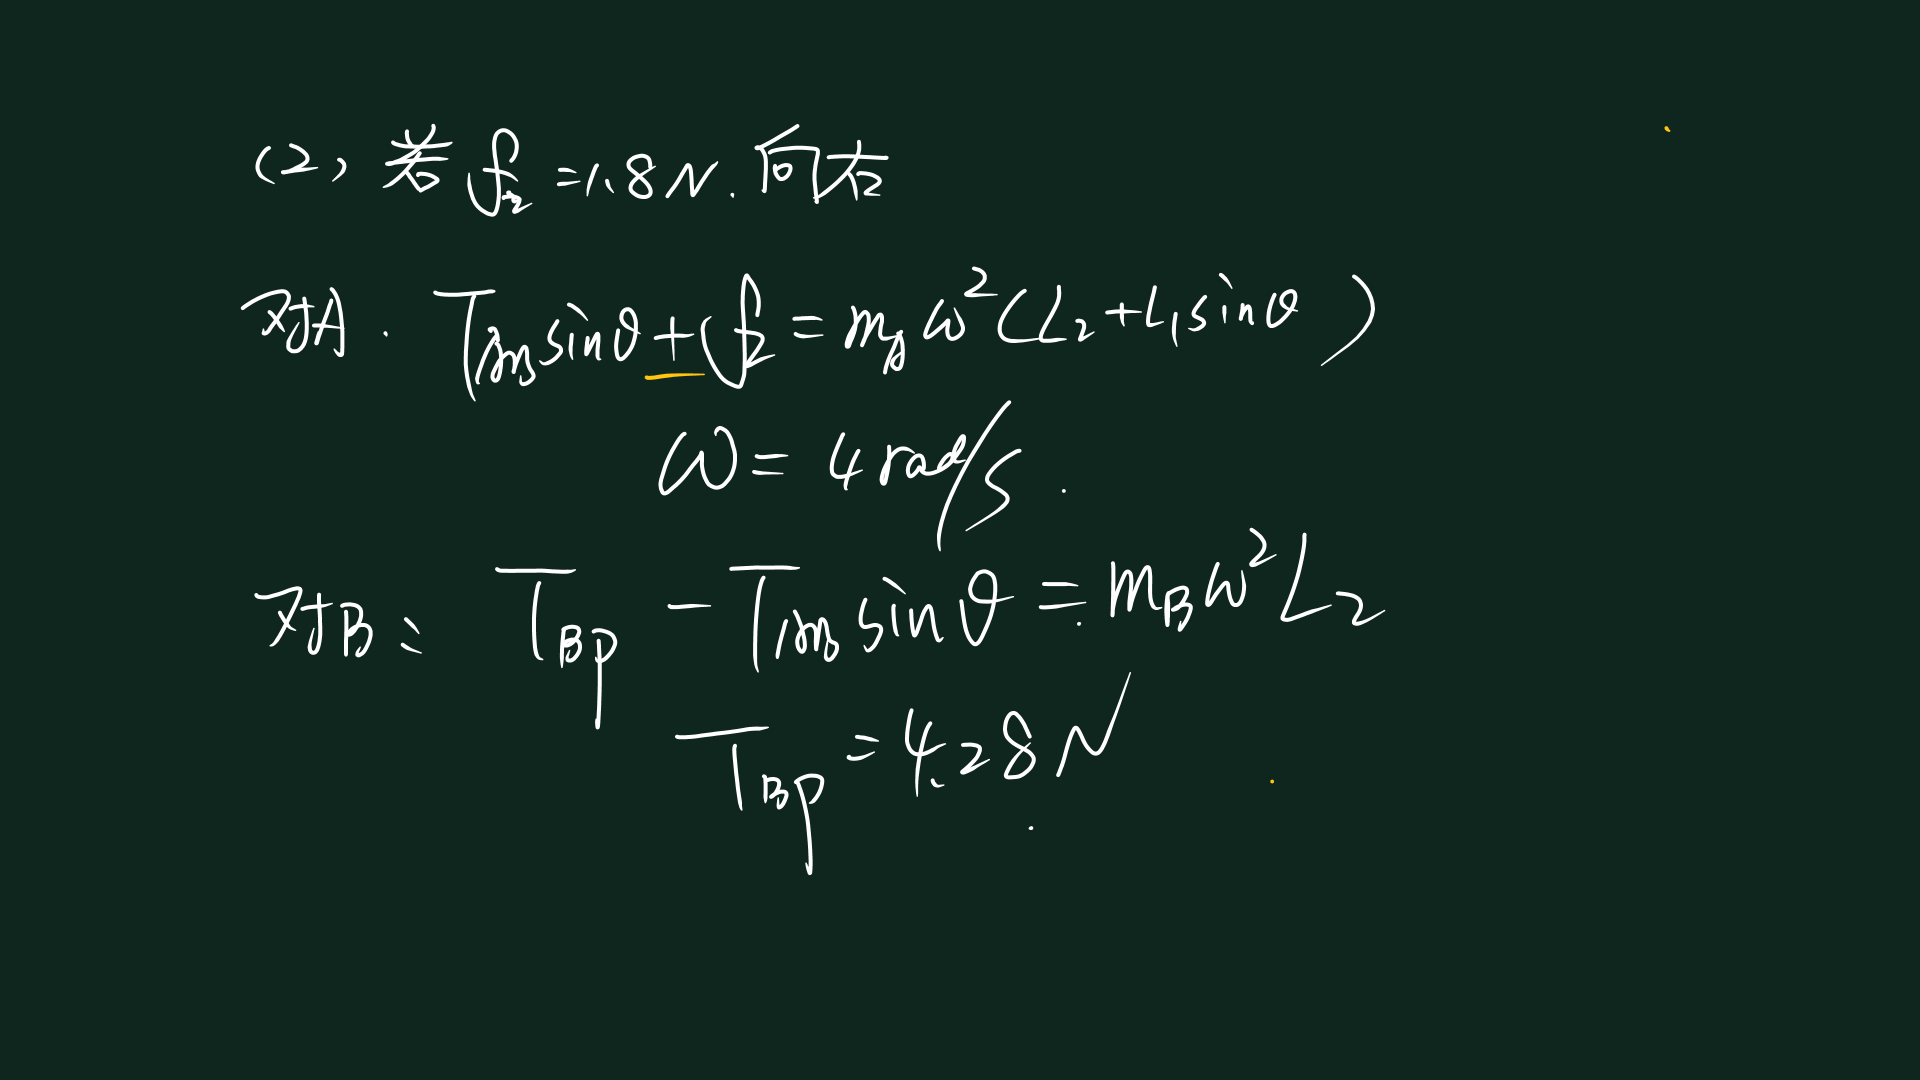 (2) 若 f₂ = 1.8N. 向右
对A. T_AB sinθ + f₂ = m_A ω²(L₂ + L₁ sinθ)
ω = 4 rad/s.
对B: T_BP - T_AB sinθ = m_B ω² L₂
T_BP = 4.28N